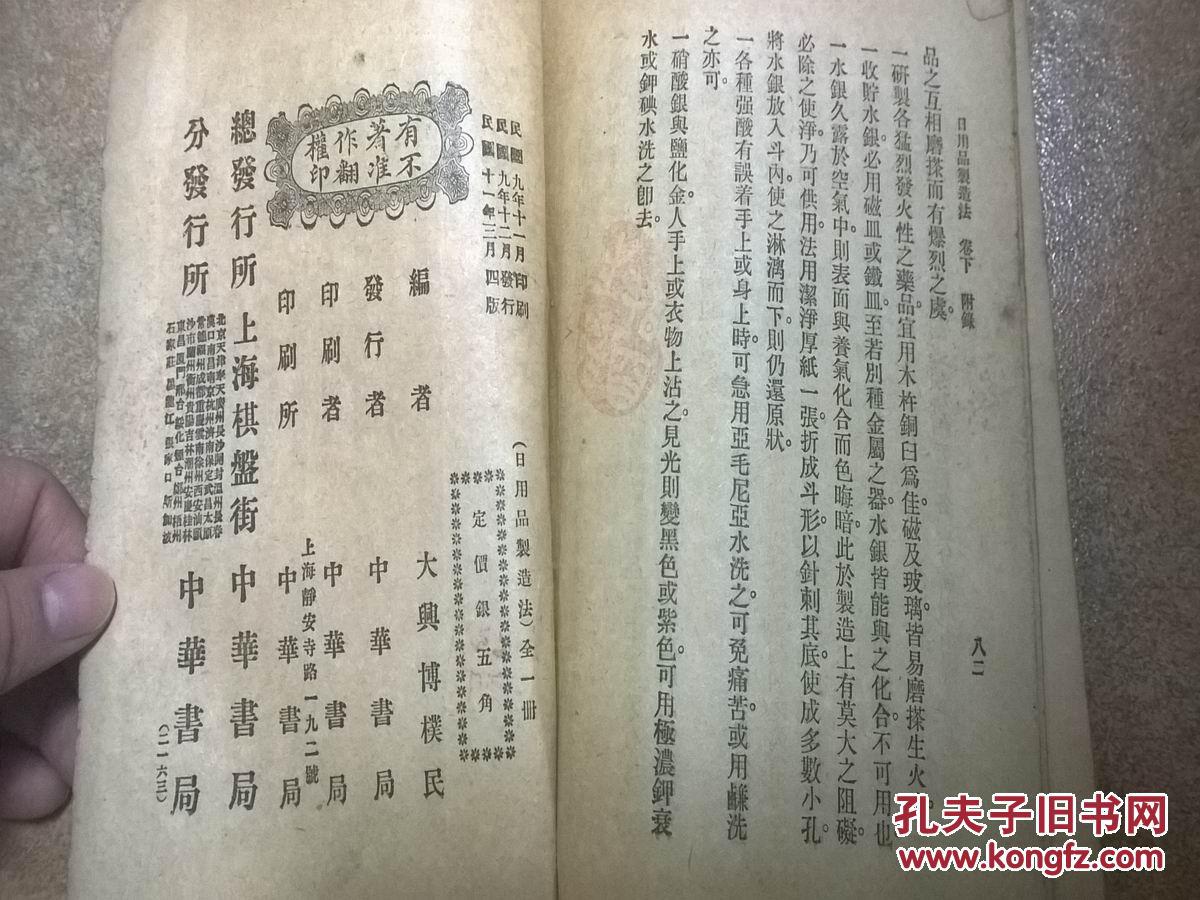 日用品製造法　卷下　附錄
八二
品之互相磨搽而有爆烈之虞。
一研製各猛烈發火性之藥品宜用木杵銅臼爲佳。磁及玻璃皆易磨搽生火。
一收貯水銀。必用磁皿或鐵皿。至若別種金屬之器。水銀皆能與之化合。不可用也
一水銀久露於空氣中。則表面與養氣化合而色晦暗。此於製造上有莫大之阻礙。
必除之使淨。乃可供用。法用潔淨厚紙一張。折成斗形。以針刺其底。使成多數小孔。
將水銀放入斗內。使之淋漓而下。則仍還原狀。
一各種强酸有誤着手上或身上時。可急用亞毛尼亞水洗之。可免痛苦。或用鹻洗
之亦可。
一硝酸銀與鹽化金。人手上或衣物上沾之。見光則變黑色或紫色。可用極濃鉀衰
水或鉀碘水洗之卽去。
民國九年十一月印刷
民國九年十二月發行
民國十一年三月四版
有著作權
不准翻印
（日用品製造法）全一冊
定價銀五角
編者　大興博樸民
發行者　中華書局
印刷者　中華書局
上海靜安寺路一九二號
印刷所　中華書局
總發行所　上海棋盤街　中華書局
分發行所　中華書局
北京天津奉天廣州長沙開封溫州長春
漢口南昌南京杭州濟南保定武昌太原
常德福州成都重慶雲南徐州西安汕頭
沙市蘭州衡州貴陽吉林潮州安慶桂林
（二一六三）
孔夫子旧书网
www.kongfz.com